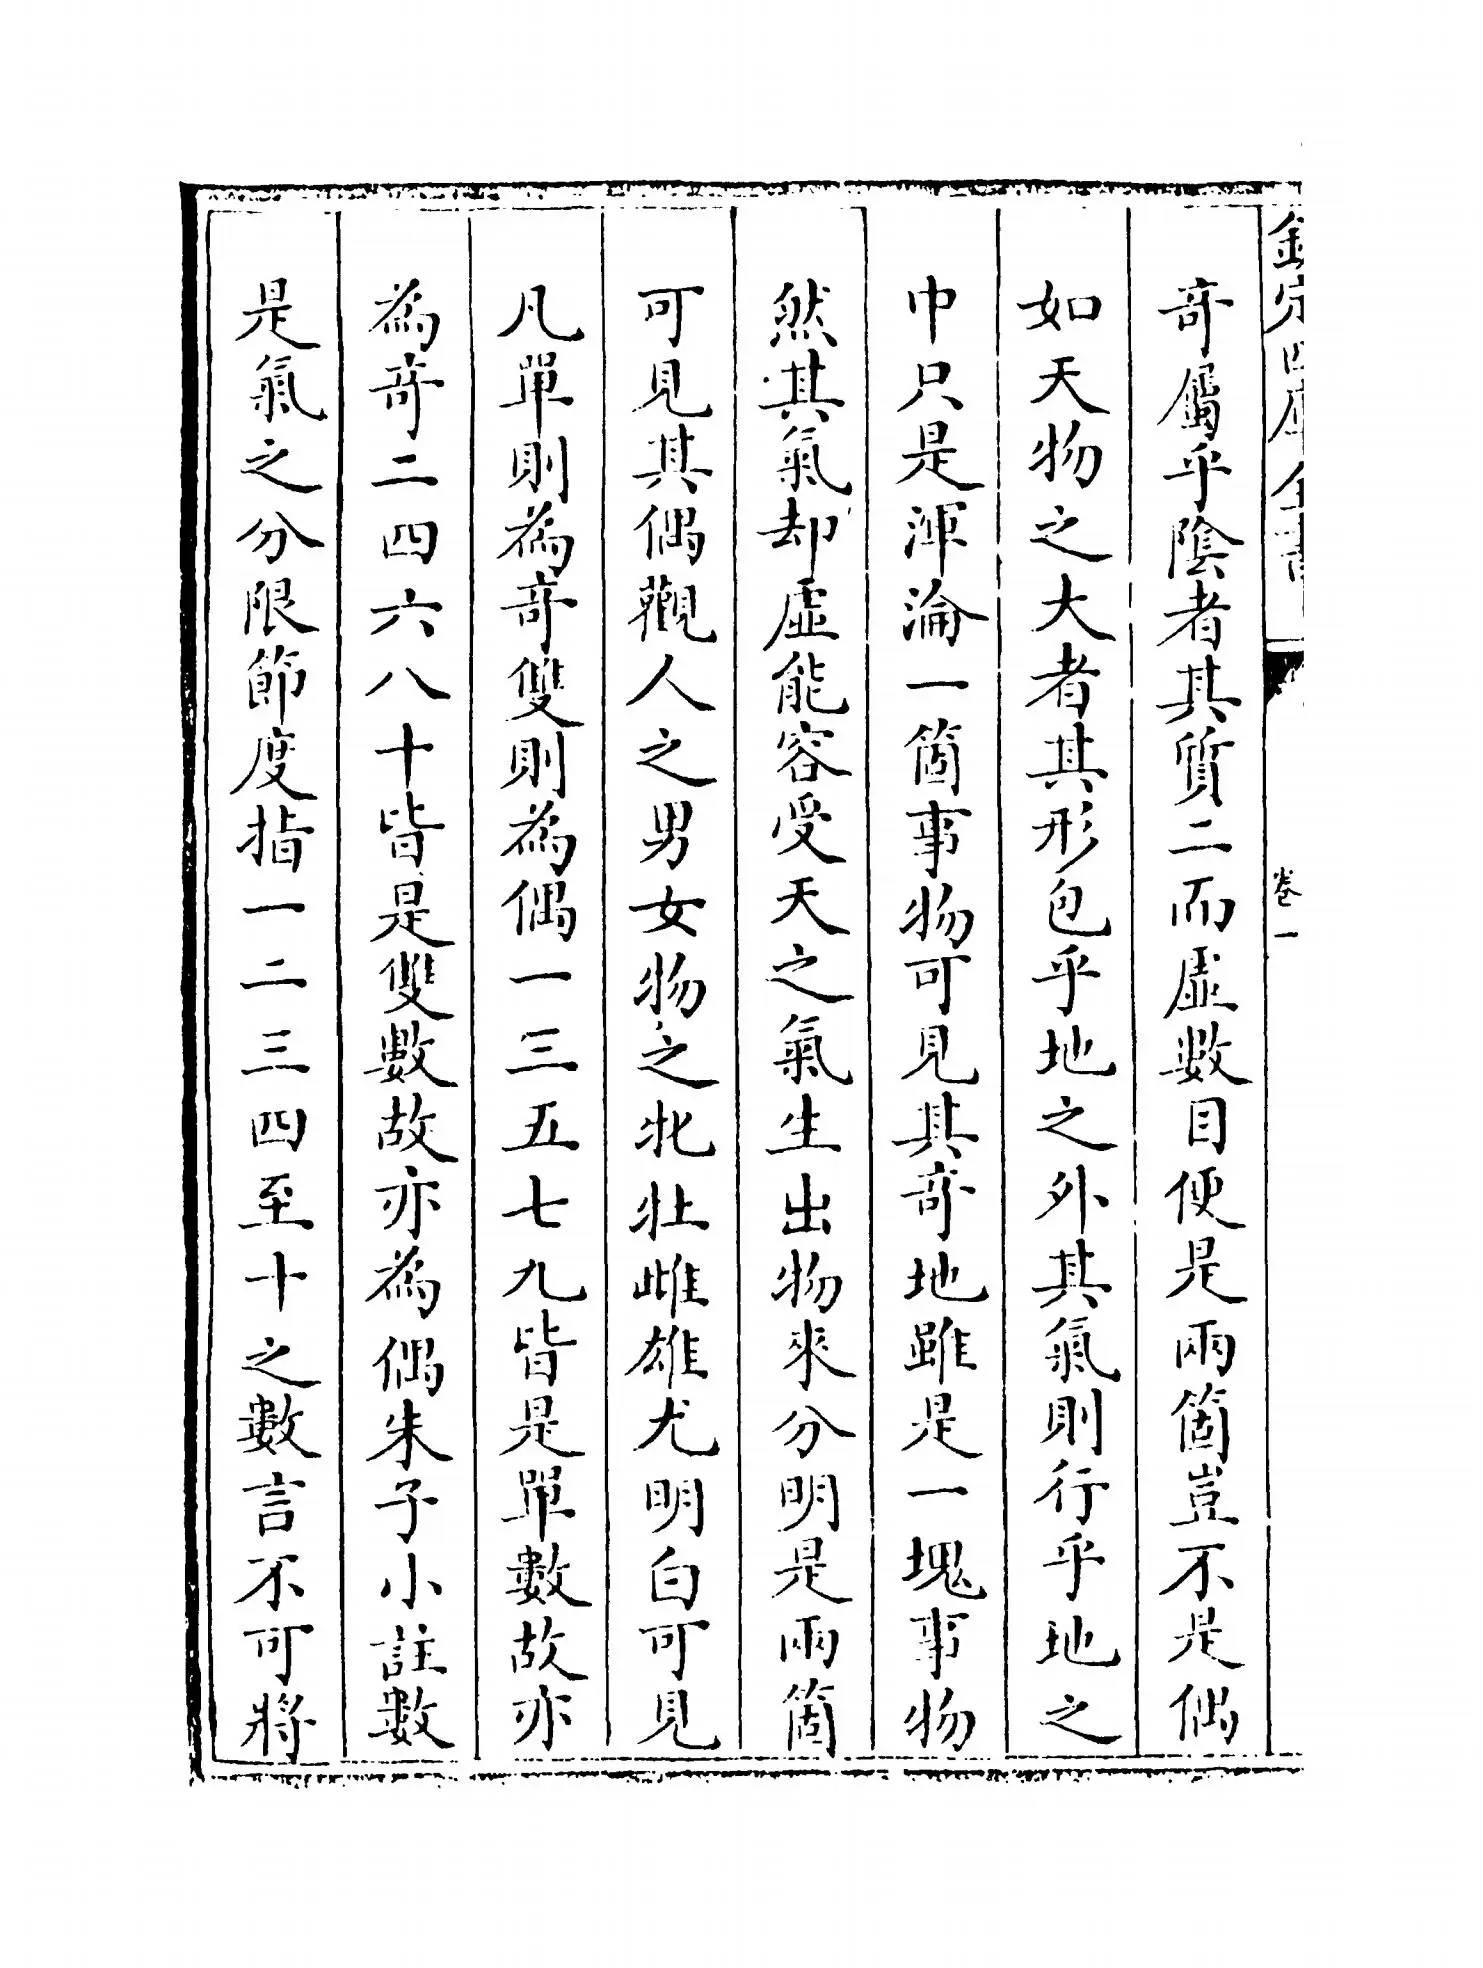 欽定四庫全書
卷一
奇屬乎陰者其質二而虛數目便是兩箇豈不是偶
如天物之大者其形包乎地之外其氣則行乎地之
中只是渾淪一箇事物可見其奇地雖是一塊事物
然其氣却虛能容受天之氣生出物來分明是兩箇
可見其偶觀人之男女物之牝牡雌雄尤明白可見
凡單則為奇雙則為偶一三五七九皆是單數故亦
為奇二四六八十皆是雙數故亦為偶朱子小註數
是氣之分限節度指一二三四至十之數言不可將